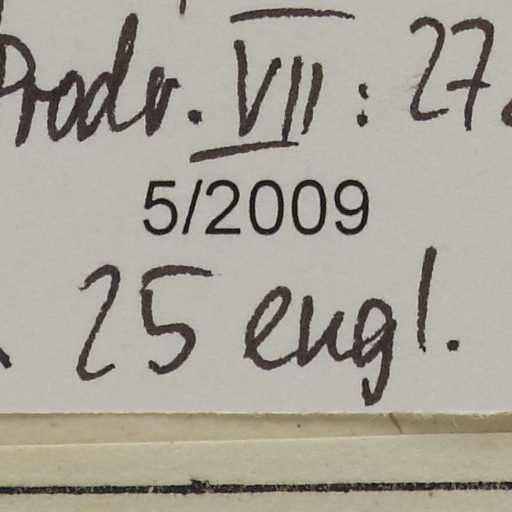 Prodr. VII: 27
5/2009
25 engl.